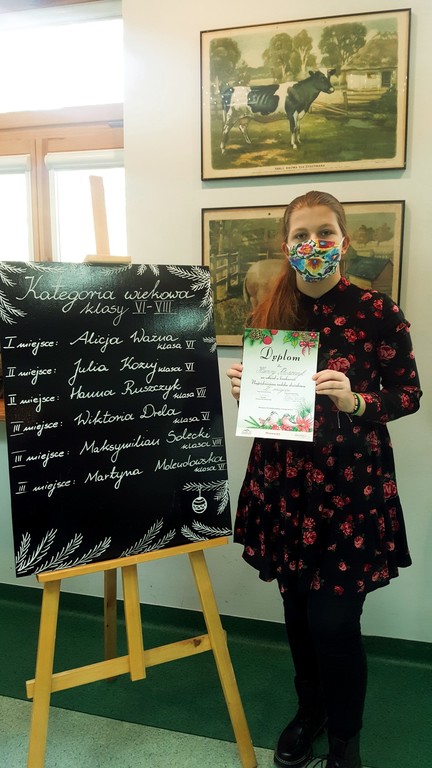 Kategoria wiekowa
klasy VI-VIII
I miejsce: Alicja Ważna klasa VI
II miejsce: Julia Kozuj klasa VI
II miejsce: Hanna Ruszczyk klasa VII
III miejsce: Wiktoria Drela klasa VI
III miejsce: Maksymilian Solecki klasa VIII
III miejsce: Martyna Molendowska klasa VII
Dyplom